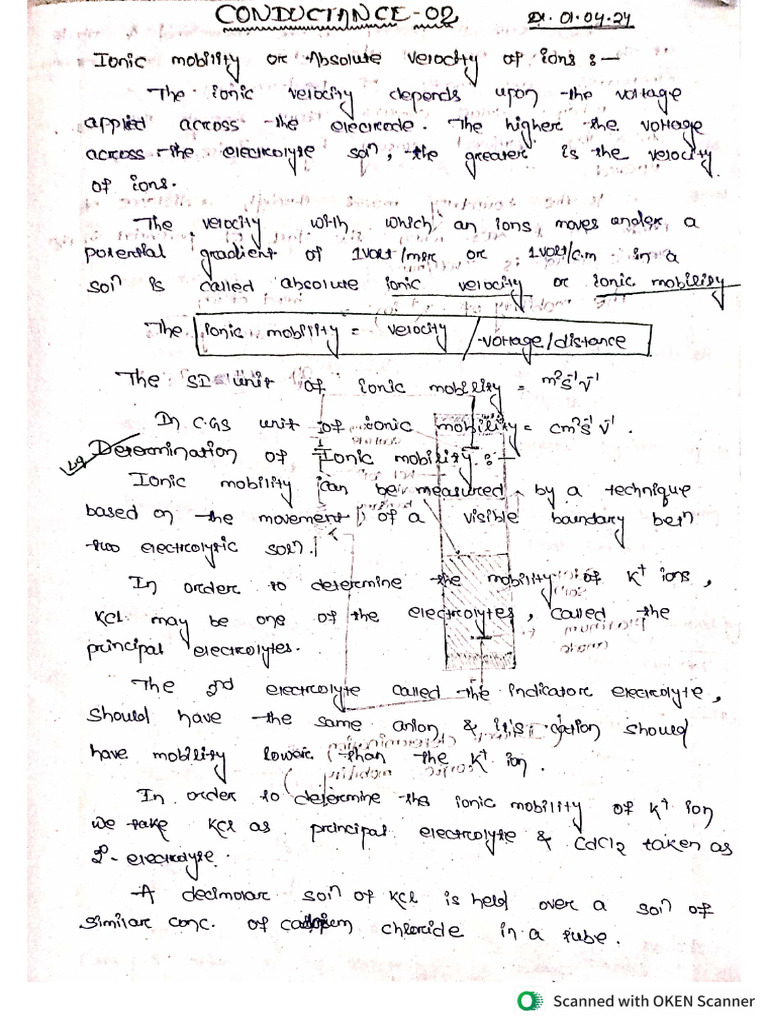 CONDUCTANCE-02 Dt. 01.04.24
Ionic mobility or Absolute velocity of ions :-
The ionic velocity depends upon the voltage
applied across the electrode. The higher the voltage
across the electrolyte soln, the greater is the velocity
of ions.
The velocity with which an ions moves under a
potential gradient of 1volt/mtr or 1volt/c.m in a
soln is called absolute ionic velocity or ionic mobility
The ionic mobility = velocity / voltage/distance
The SI unit of ionic mobility = m²s⁻¹v⁻¹
In C.GS unit of ionic mobility = cm²s⁻¹v⁻¹.
Determination of Ionic mobility :-
Ionic mobility can be measured by a technique
based on the movement of a visible boundary betn
two electrolytic soln.
In order to determine the mobility of K⁺ ions,
KCl may be one of the electrolytes, called the
principal electrolytes.
The 2nd electrolyte called the indicator electrolyte,
should have the same anion & its cation should
have mobility lower than the K⁺ ion.
In order to determine the ionic mobility of K⁺ ion
we take KCl as principal electrolyte & CdCl₂ taken as
2°-electrolyte.
A decimolar soln of KCl is held over a soln of
similar conc. of chloride in a tube.
Scanned with OKEN Scanner